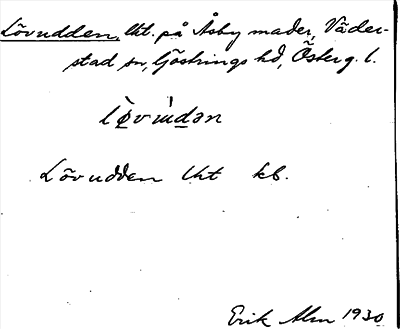 Lövudden, lht. på Åsby mader, Väder-
stad sn, Göstrings hd, Österg. l.
Lövudden lht kb.
Erik Alm 1930